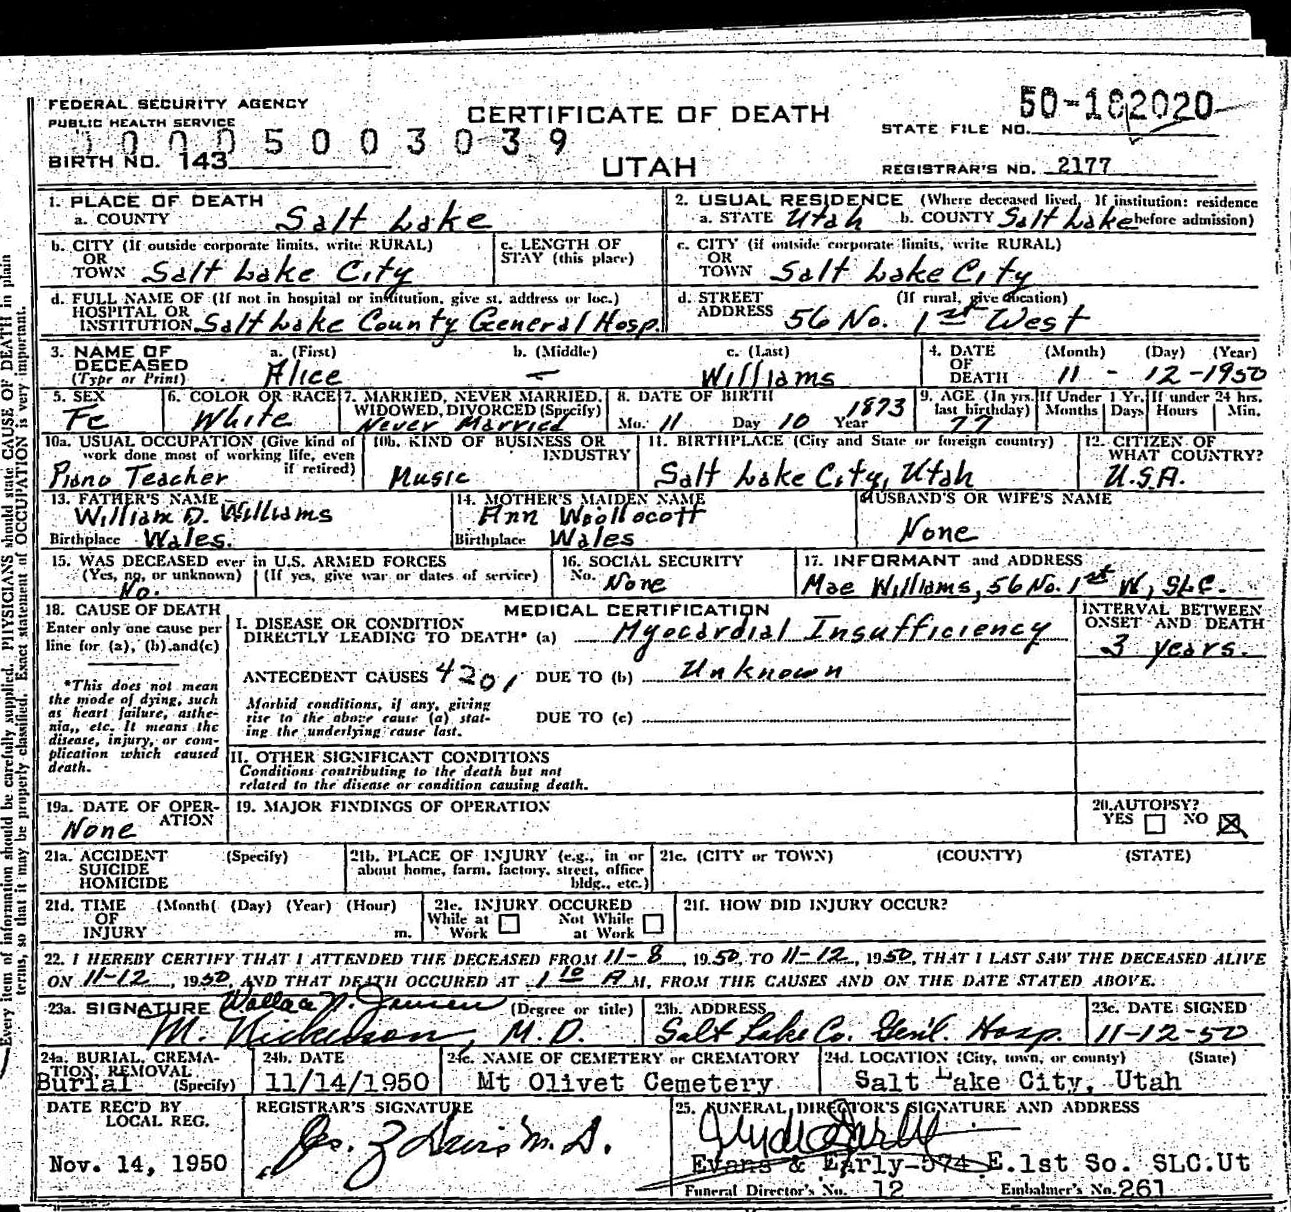 FEDERAL SECURITY AGENCY
PUBLIC HEALTH SERVICE
CERTIFICATE OF DEATH
UTAH
50-182020
STATE FILE NO.
0005003039
BIRTH NO. 143
REGISTRAR'S NO. 2177
Every item of information should be carefully supplied. PHYSICIANS should state CAUSE OF DEATH in plain
terms, so that it may be properly classified. Exact statement of OCCUPATION is very important.
1. PLACE OF DEATH
a. COUNTY Salt Lake
2. USUAL RESIDENCE (Where deceased lived. If institution: residence
a. STATE Utah b. COUNTY Salt Lake before admission)
b. CITY (If outside corporate limits, write RURAL)
OR
TOWN Salt Lake City
c. LENGTH OF
STAY (this place)
c. CITY (if outside corporate limits, write RURAL)
OR
TOWN Salt Lake City
d. FULL NAME OF (If not in hospital or institution, give st. address or loc.)
HOSPITAL OR
INSTITUTION Salt Lake County General Hosp.
d. STREET (If rural, give location)
ADDRESS 56 No. 1st West
3. NAME OF DECEASED
(Type or Print)
a. (First) Alice
b. (Middle) —
c. (Last) Williams
4. DATE OF DEATH (Month) (Day) (Year)
11 - 12 - 1950
5. SEX
Fe
6. COLOR OR RACE
White
7. MARRIED, NEVER MARRIED,
WIDOWED, DIVORCED (Specify)
Never Married
8. DATE OF BIRTH
Mo. 11 Day 10 Year 1873
9. AGE (In yrs.
last birthday)
77
If Under 1 Yr.
Months Days
If under 24 hrs.
Hours Min.
10a. USUAL OCCUPATION (Give kind of
work done most of working life, even
if retired)
Piano Teacher
10b. KIND OF BUSINESS OR
INDUSTRY
Music
11. BIRTHPLACE (City and State or foreign country)
Salt Lake City, Utah
12. CITIZEN OF
WHAT COUNTRY?
U.S.A.
13. FATHER'S NAME
William D. Williams
Birthplace Wales.
14. MOTHER'S MAIDEN NAME
Ann Woollocott
Birthplace Wales
HUSBAND'S OR WIFE'S NAME
None
15. WAS DECEASED ever in U.S. ARMED FORCES
(Yes, no, or unknown) (If yes, give war or dates of service)
No.
16. SOCIAL SECURITY
No. None
17. INFORMANT and ADDRESS
Mae Williams, 56 No. 1st W, SLC.
18. CAUSE OF DEATH
Enter only one cause per
line for (a), (b) and (c)
*This does not mean
the mode of dying, such
as heart failure, asthe-
nia,, etc. It means the
disease, injury, or com-
plication which caused
death.
MEDICAL CERTIFICATION
I. DISEASE OR CONDITION
DIRECTLY LEADING TO DEATH* (a) Myocardial Insufficiency
INTERVAL BETWEEN
ONSET AND DEATH
3 years.
ANTECEDENT CAUSES 4201 DUE TO (b) Unknown
Morbid conditions, if any, giving
rise to the above cause (a) stat-
ing the underlying cause last.
DUE TO (c)
II. OTHER SIGNIFICANT CONDITIONS
Conditions contributing to the death but not
related to the disease or condition causing death.
19a. DATE OF OPER-
ATION
None
19. MAJOR FINDINGS OF OPERATION
20. AUTOPSY?
YES NO
21a. ACCIDENT (Specify)
SUICIDE
HOMICIDE
21b. PLACE OF INJURY (e.g., in or
about home, farm, factory, street, office
bldg., etc.)
21c. (CITY or TOWN) (COUNTY) (STATE)
21d. TIME (Month( (Day) (Year) (Hour)
OF
INJURY m.
21e. INJURY OCCURED
While at Work Not While at Work
21f. HOW DID INJURY OCCUR?
22. I HEREBY CERTIFY THAT I ATTENDED THE DECEASED FROM 11-8, 1950, TO 11-12, 1950, THAT I LAST SAW THE DECEASED ALIVE
ON 11-12, 1950, AND THAT DEATH OCCURED AT 1 10 A M, FROM THE CAUSES AND ON THE DATE STATED ABOVE.
23a. SIGNATURE Jensen (Degree or title)
M. Nickelson, M.D.
23b. ADDRESS
Salt Lake Co. Genl. Hosp.
23c. DATE SIGNED
11-12-50
24a. BURIAL, CREMA-
TION, REMOVAL
Burial (Specify)
24b. DATE
11/14/1950
24c. NAME OF CEMETERY or CREMATORY
Mt Olivet Cemetery
24d. LOCATION (City, town, or county) (State)
Salt Lake City, Utah
DATE REC'D BY
LOCAL REG.
Nov. 14, 1950
REGISTRAR'S SIGNATURE
M. D.
25. FUNERAL DIRECTOR'S SIGNATURE AND ADDRESS
Evans & Early-574 E.1st So. SLC.Ut
Funeral Director's No. 12 Embalmer's No. 261